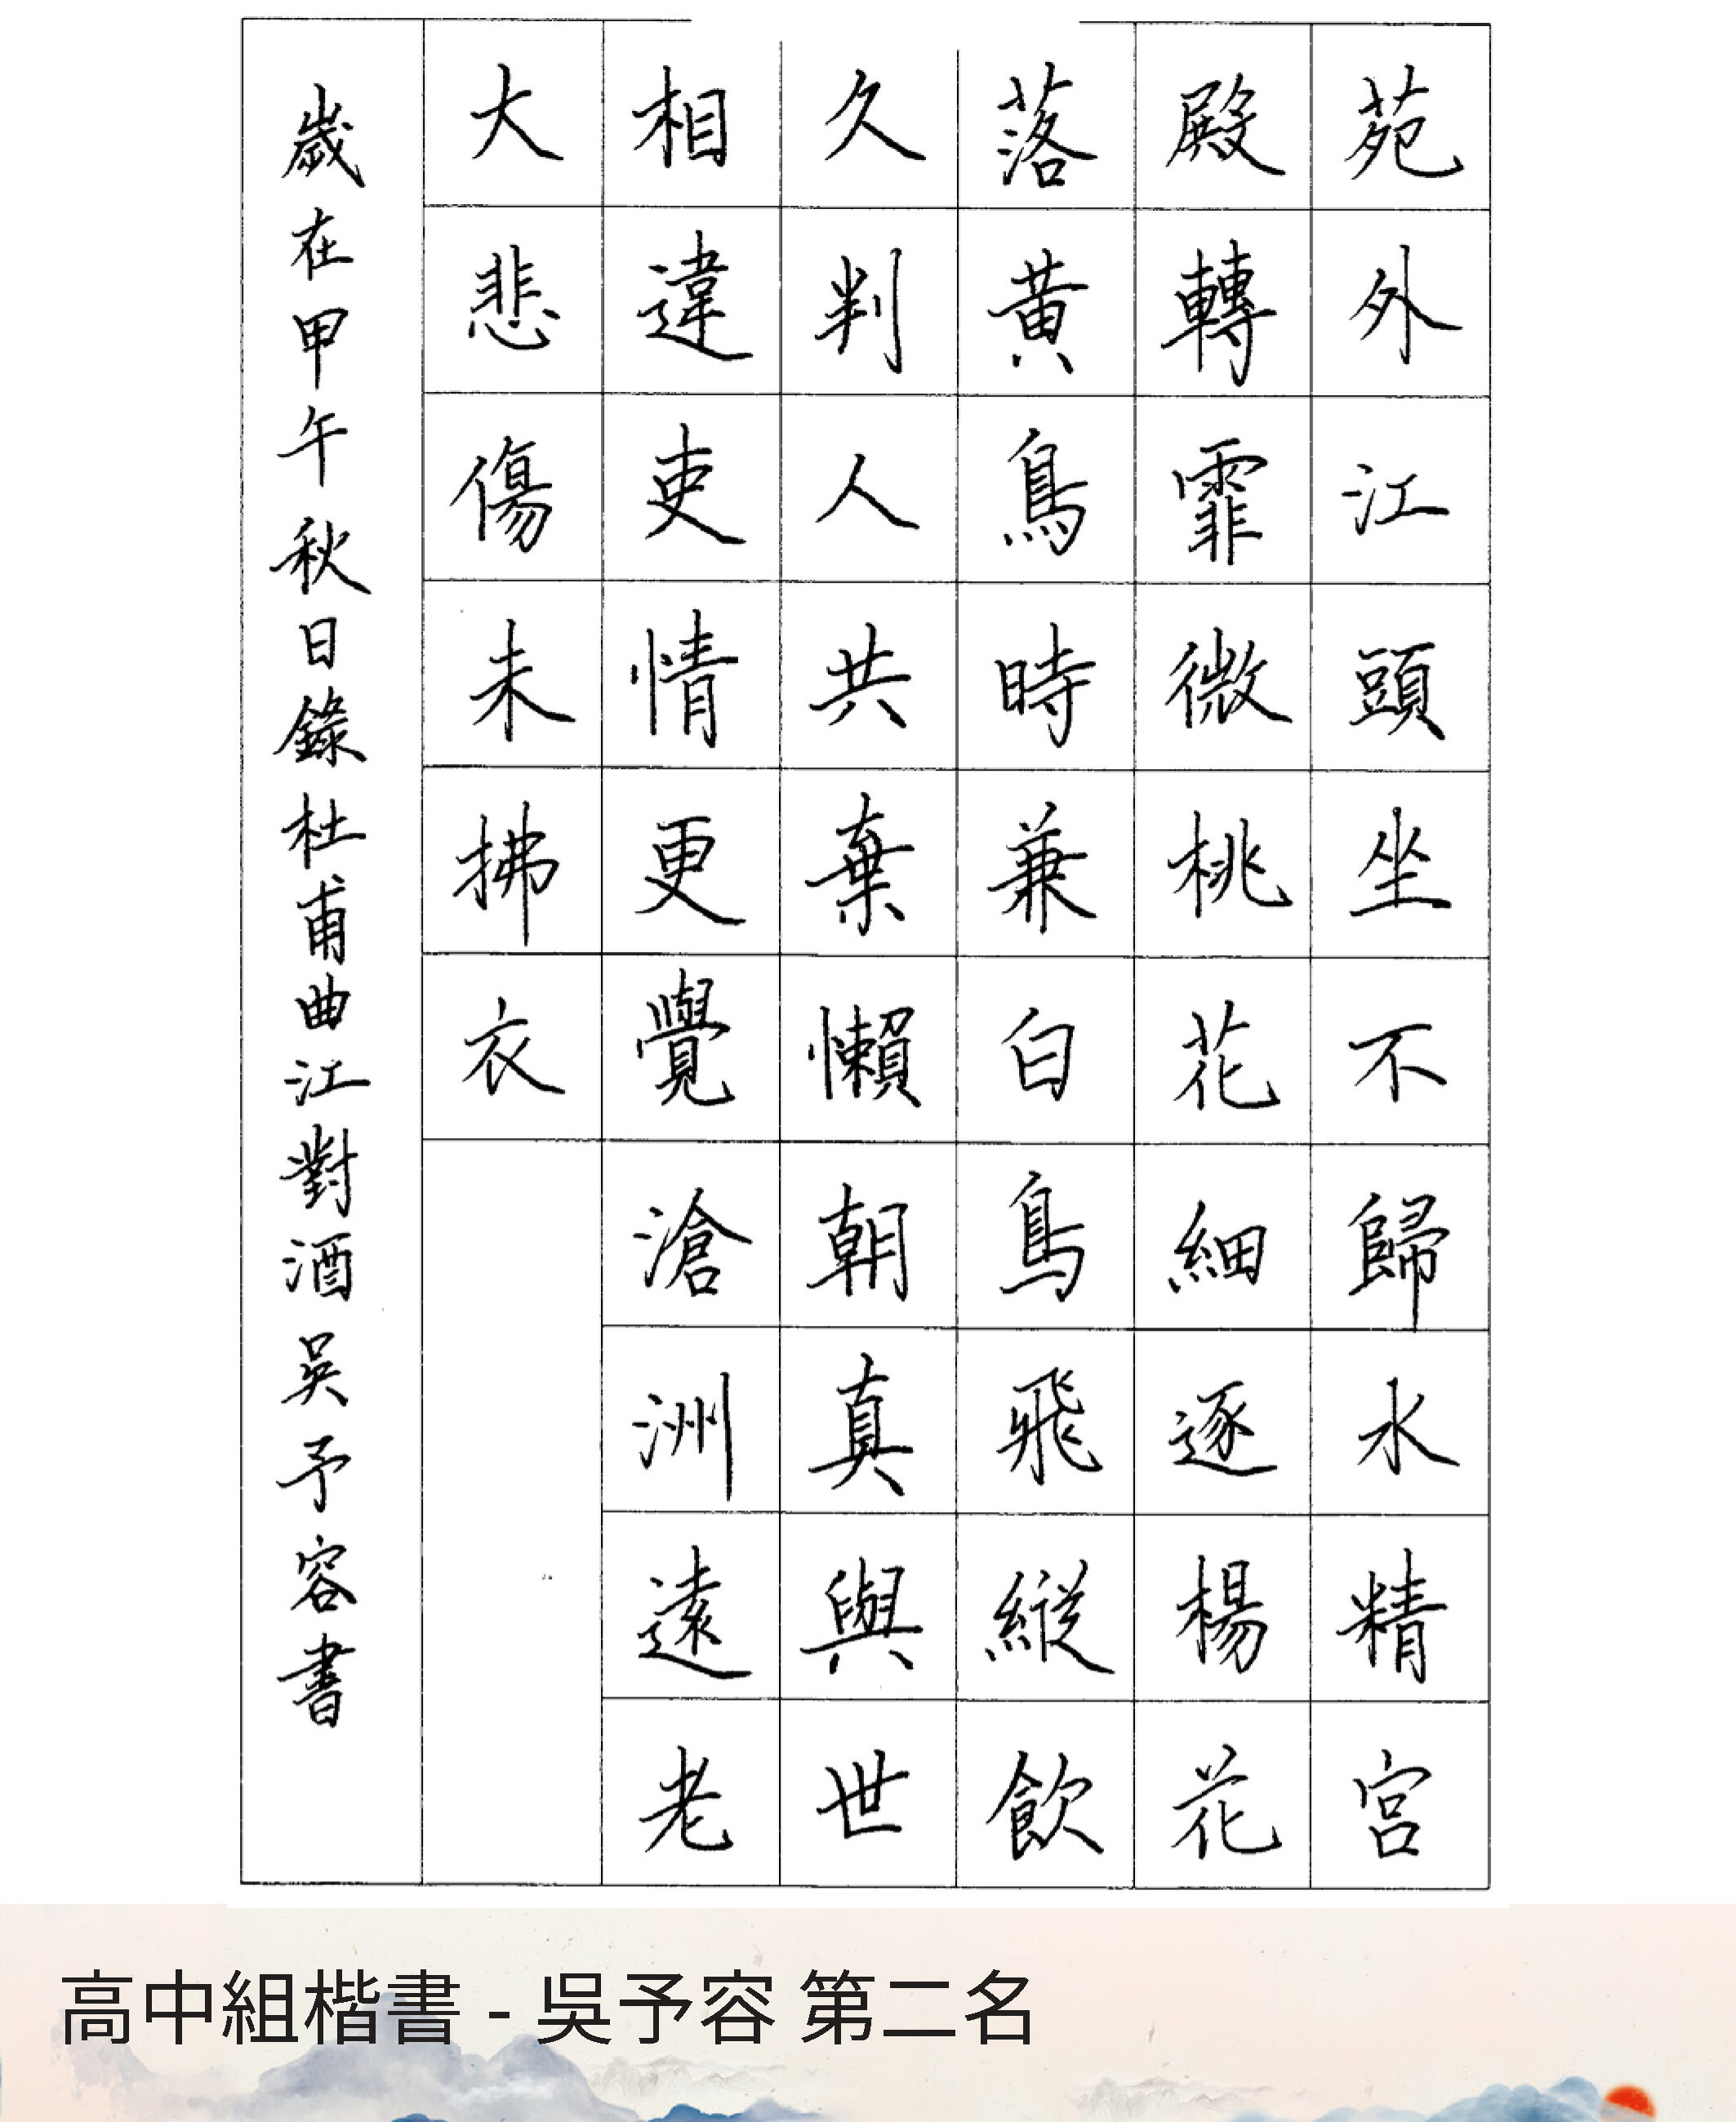 苑外江頭坐不歸水精宮
殿轉霏微桃花細逐楊花
落黃鳥時兼白鳥飛縱飲
久判人共棄懶朝真與世
相違吏情更覺滄洲遠老
大悲傷未拂衣
歲在甲午秋日錄杜甫曲江對酒吳予容書
高中組楷書 - 吳予容 第二名